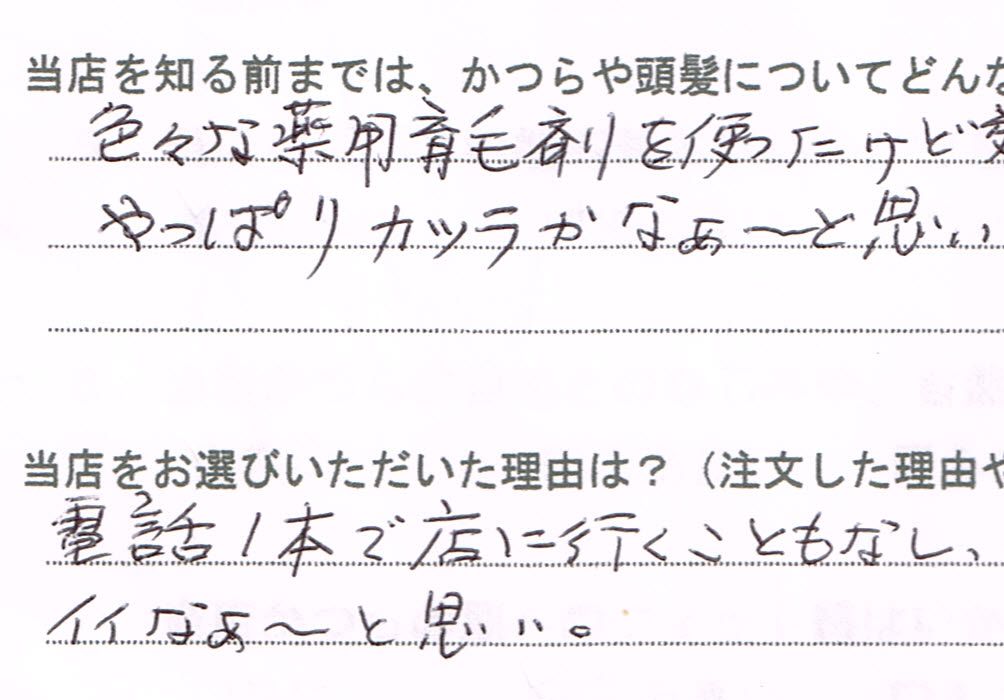 当店を知る前までは、かつらや頭髪についてどんな
色々な薬用育毛剤を使ったけど
やっぱりカツラかなぁ〜と思い
当店をお選びいただいた理由は？（注文した理由や
電話1本で店に行くこともなし、
イイなぁ〜と思い。